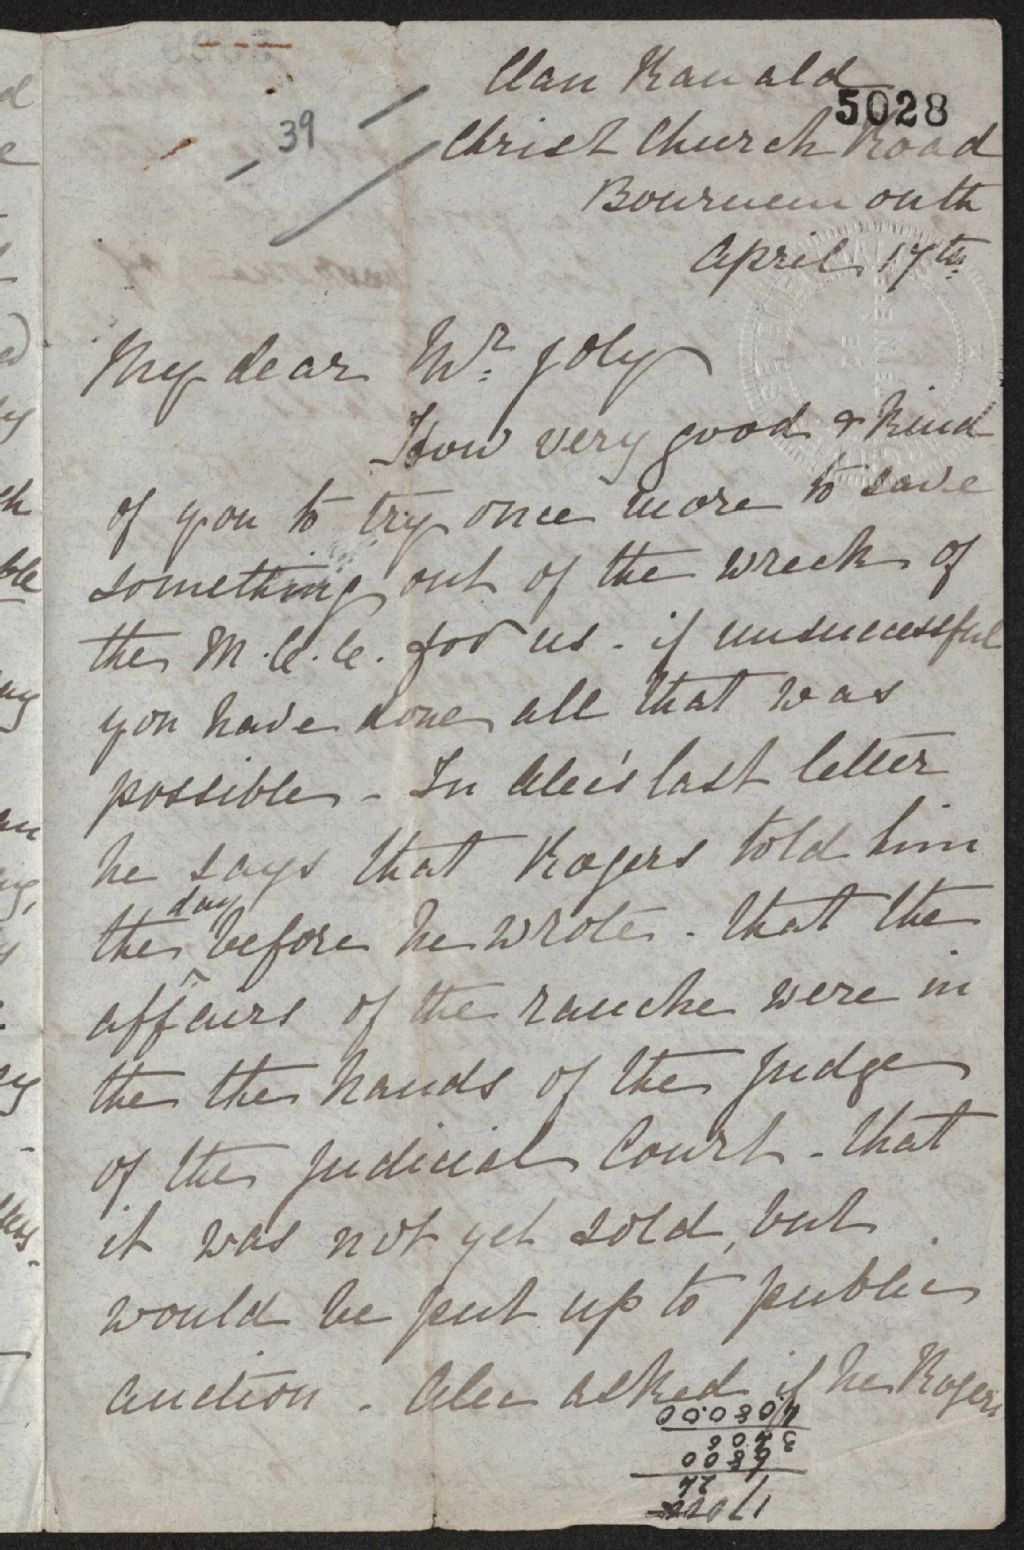 Clan Ranald
5028
39
Christ Church Road
Bournemouth
April 17th
My dear Mr. Joly
How very good & kind
of you to try once more to save
something out of the wreck of
the M.C.C. for us. if unsuccessful
you have done all that was
possible - In Alec's last letter
he says that Rogers told him
the day before he wrote - that the
affairs of the ranche were in
the the hands of the Judge
of the Judicial Court - that
it was not yet sold, but
would be put up to public
auction - Alec asked if he Rogers